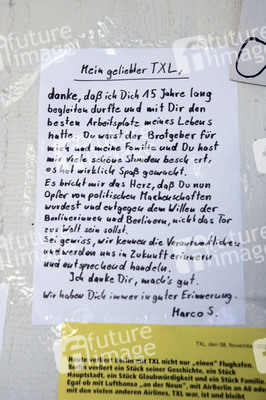 Mein geliebter TXL,
danke, daß ich Dich 15 Jahre lang
begleiten durfte und mit Dir den
besten Arbeitsplatz meines Lebens
hatte. Du warst der Brotgeber für
mich und meine Familie und Du hast
mir viele schöne Stunden beschert,
es hat wirklich Spaß gemacht.
Es bricht mir das Herz, daß Du nun
Opfer von politischen Machenschaften
wurdest und entgegen dem Willen der
Berlinerinnen und Berlinern, nicht das Tor
zur Welt sein sollst.
Sei gewiss, wir kennen die Verantwortlichen
und werden uns in Zukunft erinnern
und entsprechend handeln.
Ich danke Dir, mach's gut.
Wir haben Dich immer in guter Erinnerung.
Marco S.
TXL, den 08. November
Heute verliert Berlin mit TXL nicht nur „einen" Flughafen.
Berlin verliert ein Stück seiner Geschichte, ein Stück
Hauptstadt, ein Stück Glaubwürdigkeit und ein Stück Familie.
Egal ob mit Lufthansa „an der Nonne", mit AirBerlin an A0 oder
mit den vielen anderen Airlines, TXL war, ist und bleibt
future image